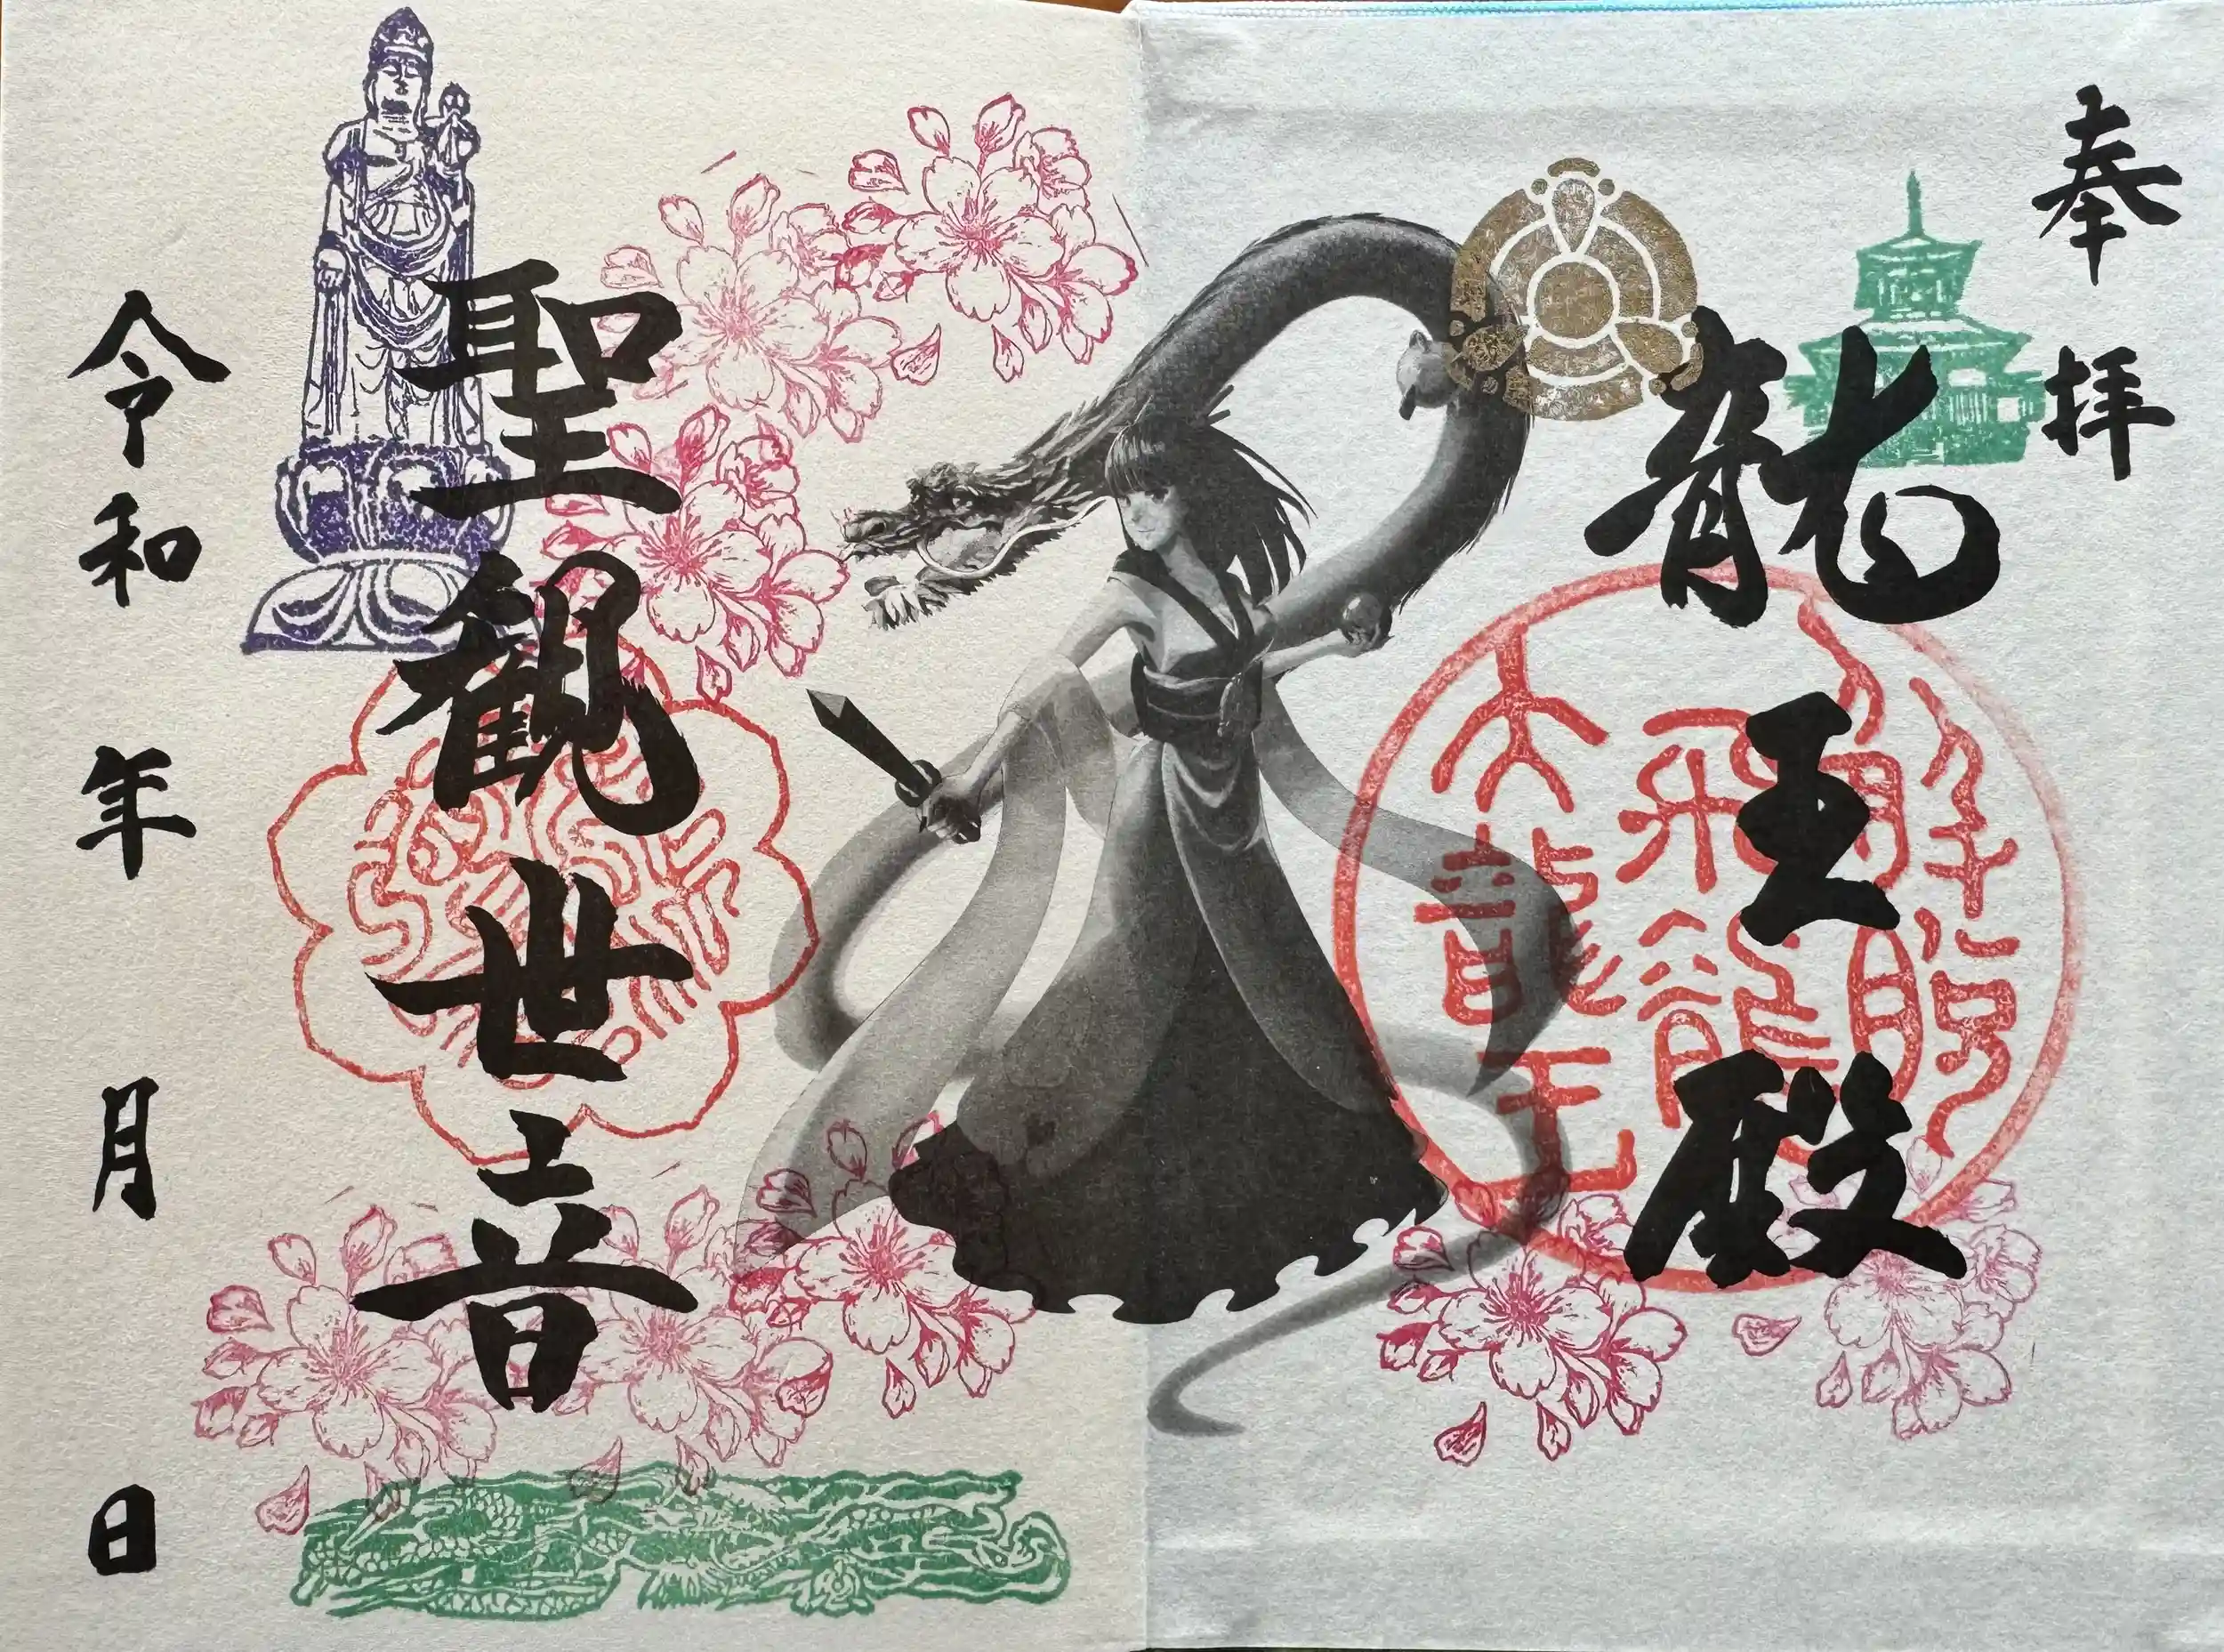 奉拝
龍王殿
大龍王
聖観世音
令和 年 月 日